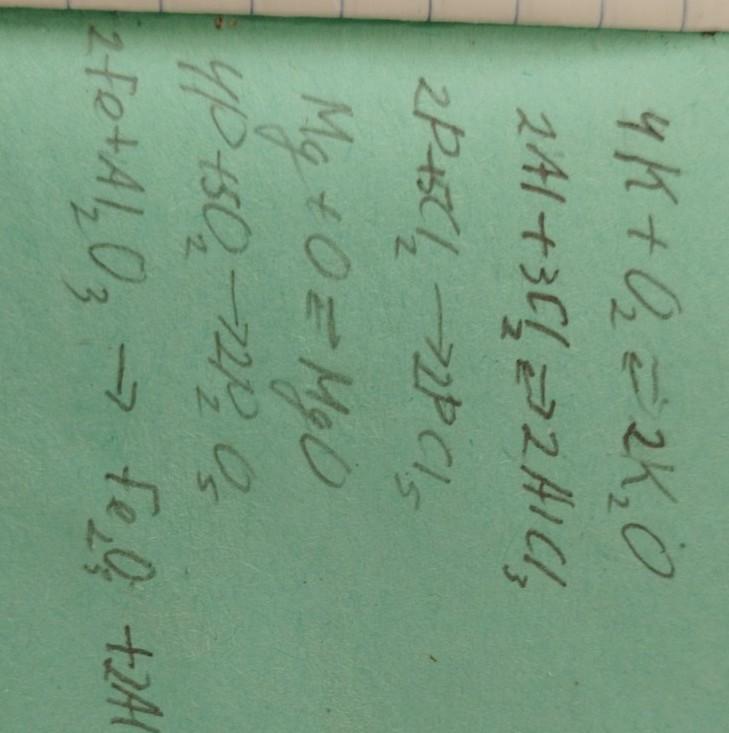 4K + O₂ ⇒ 2K₂O
2Al + 3Cl₂ ⇒ 2AlCl₃
2P + 5Cl₂ → 2PCl₅
Mg + O = MgO
4P + 5O₂ → 2P₂O₅
2Fe + Al₂O₃ → Fe₂O₃ + 2Al